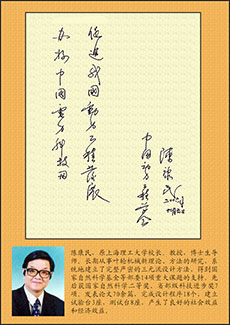 办好中国电力科技网
促进我国动力工程发展
陈康民
陈康民，原上海理工大学校长、教授、博士生导
师，长期从事叶轮机械新理论、方法的研究，系
统地建立了完整严密的三元流设计方法，得到国
家自然科学基金等部委14项重大课题的支持，先
后获国家自然科学二等奖、省部级科技进步奖7
项，发表论文70余篇，完成设计程序18个，建立
试验台5座、测试台8座，产生了良好的社会效
益和经济效益。